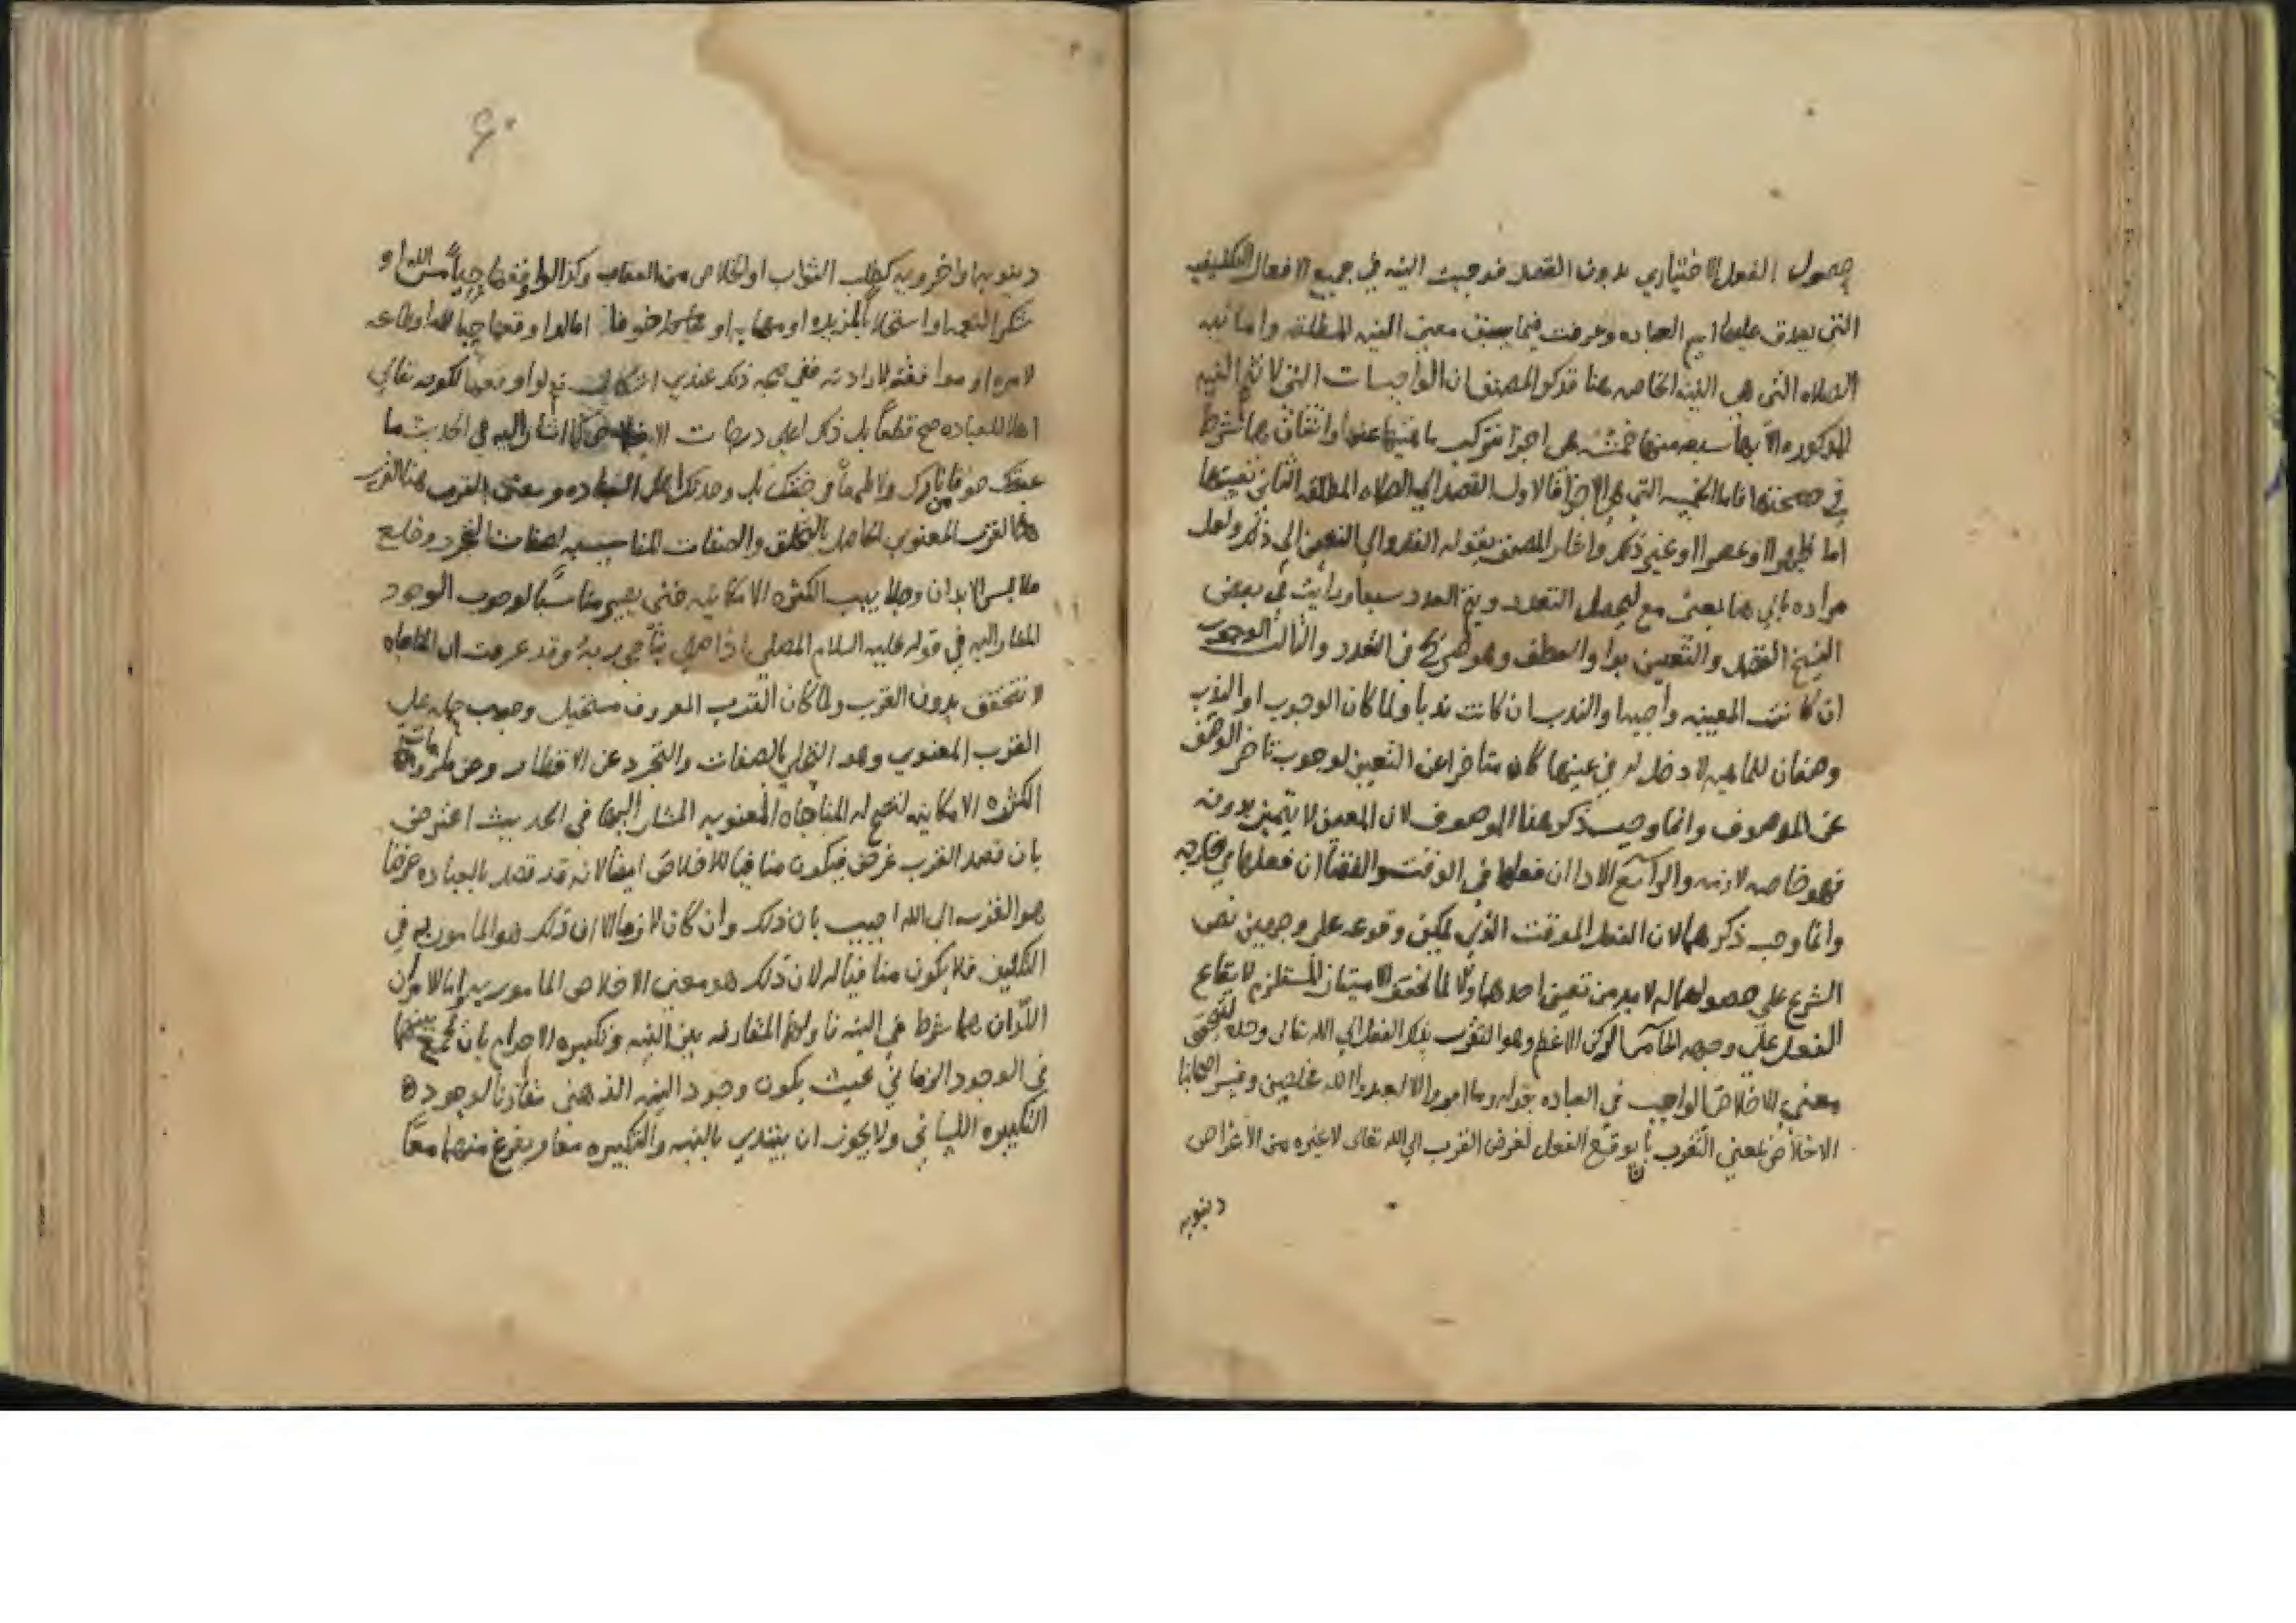 حصول الفعل الاختياري بدون القصد فوجبت النيه في جميع الافعال التكليفيه
التي يصدق عليها اسم العباده وعرفت فيما سبق معنى النيه المطلقه واما نيه
الصلاه التي هي النيه الخاصه هنا فذكر المصنف ان الواجبات التي لا تتم النيه
المذكوره الا بها سبعه منها خمسه هي اجزا تتركب ماهيتها عنها واثنان هما شرط
في صحتها فاما الخمسه التي هي الاجزا فالاول القصد الي الصلاه المطلقه الثاني تعيينها
اما ظهرا او عصرا او غير ذلك واشار المصنف بقوله القصد الي التعيين الي ذلك ولعل
مراده بالي هنا بمعنى مع ليحصل التعدد ويتم العدد سبعا ورايت في بعض
النسخ القصد والتعيين بواو العطف وهو صريح في التعدد والثالث الوجوب
ان كانت المعينه واجبه او الندب ان كانت ندبا ولما كان الوجوب او الندب
وصفان للماهيه لا دخل له في عينها كان متاخرا عن التعيين لوجوب تاخر الوصف
عن الموصوف وانما وجب ذكر هذا الموصوف لان المعين لا يتميز بدونه
فهو خاصه لازمه والرابع الادا ان فعلها في الوقت والقضا ان فعلها في خارجه
وانما وجب ذكرهما لان الفعل الموقت الذي يمكن وقوعه على وجهين نص
الشرع على حصولهما له لا بد من تعيين احدهما والا لما تحقق الامتياز المستلزم لايقاع
الفعل على وجهه الخامس الركن الاعظم وهو التقرب بذلك الفعل الي الله تعالى وحده ليتحقق
معنى الاخلاص الواجب في العباده بقوله وما امروا الا ليعبدوا الله مخلصين وفسر اصحابنا
الاخلاص بمعنى التقرب بان يوقع الفعل لغرض القرب الي الله تعالى لا غيره من الاغراض
دنيويه
٦٠
دنيويه او اخرويه كطلب الثواب او الخلاص من العقاب وكذا لو اوقعها حياً من الله او
شكرا لنعمه او استجلابا لمزيده او مهابه او خوفا اما لو اوقعها حبا لله او طاعه
لامره او موافقه لارادته ففي صحه ذلك عندي اشكال نعم لو اوقعها لكونه تعالي
اهلا للعباده صح قطعاً بل ذلك اعلي درجات الاخلاص كما اشار اليه في الحديث ما
عبدتك خوفا من نارك ولا طمعاً في جنتك بل وجدتك اهل العباده ومعنى القرب هنا القرب
المعنوي الحاصل بالتخلق والصفات المناسبيه لصفات المجرد وخلع
ملابس الابدان وجلابيب الكثره الامكانيه حتى يصير مناسباً لوجوب الوجود
المشار اليه في قوله عليه السلام المصلي اذا صلي يناجي ربه وقد عرفت ان المناجاه
لا تتحقق بدون القرب ولما كان القرب المعروف مستحيل وجب حمله على
القرب المعنوي وهو التحلي بالصفات والتجرد عن الاقطار وعن
الكثره الامكانيه لتصح له المناجاه المعنويه المشار اليها في الحديث اعترض
بان قصد القرب غرض فيكون منافيا للاخلاص ايضا لانه قد قصد بالعباده غرضا
هو القرب الى الله اجيب بان ذلك وان كان لازما الا ان ذلك هو المامور به في
التكليف فلا يكون منافيا له لان ذلك هو معنى الاخلاص المامور به واما الامران
اللذان هما شرط في النيه فاولهما المقارنه بين النيه وتكبيره الاحرام بان يجمع بينهما
في الوجود الزماني بحيث يكون وجود النيه الذهني مقارنا لوجود
التكبيره اللساني ولا يجوز ان يبتدي بالنيه والتكبيره معا ويفرغ منهما معاً